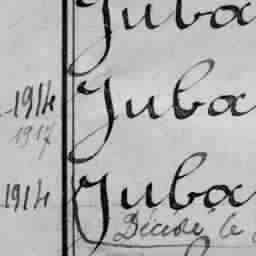 Juba
1914 Juba
1917
1914 Juba
Décédé le